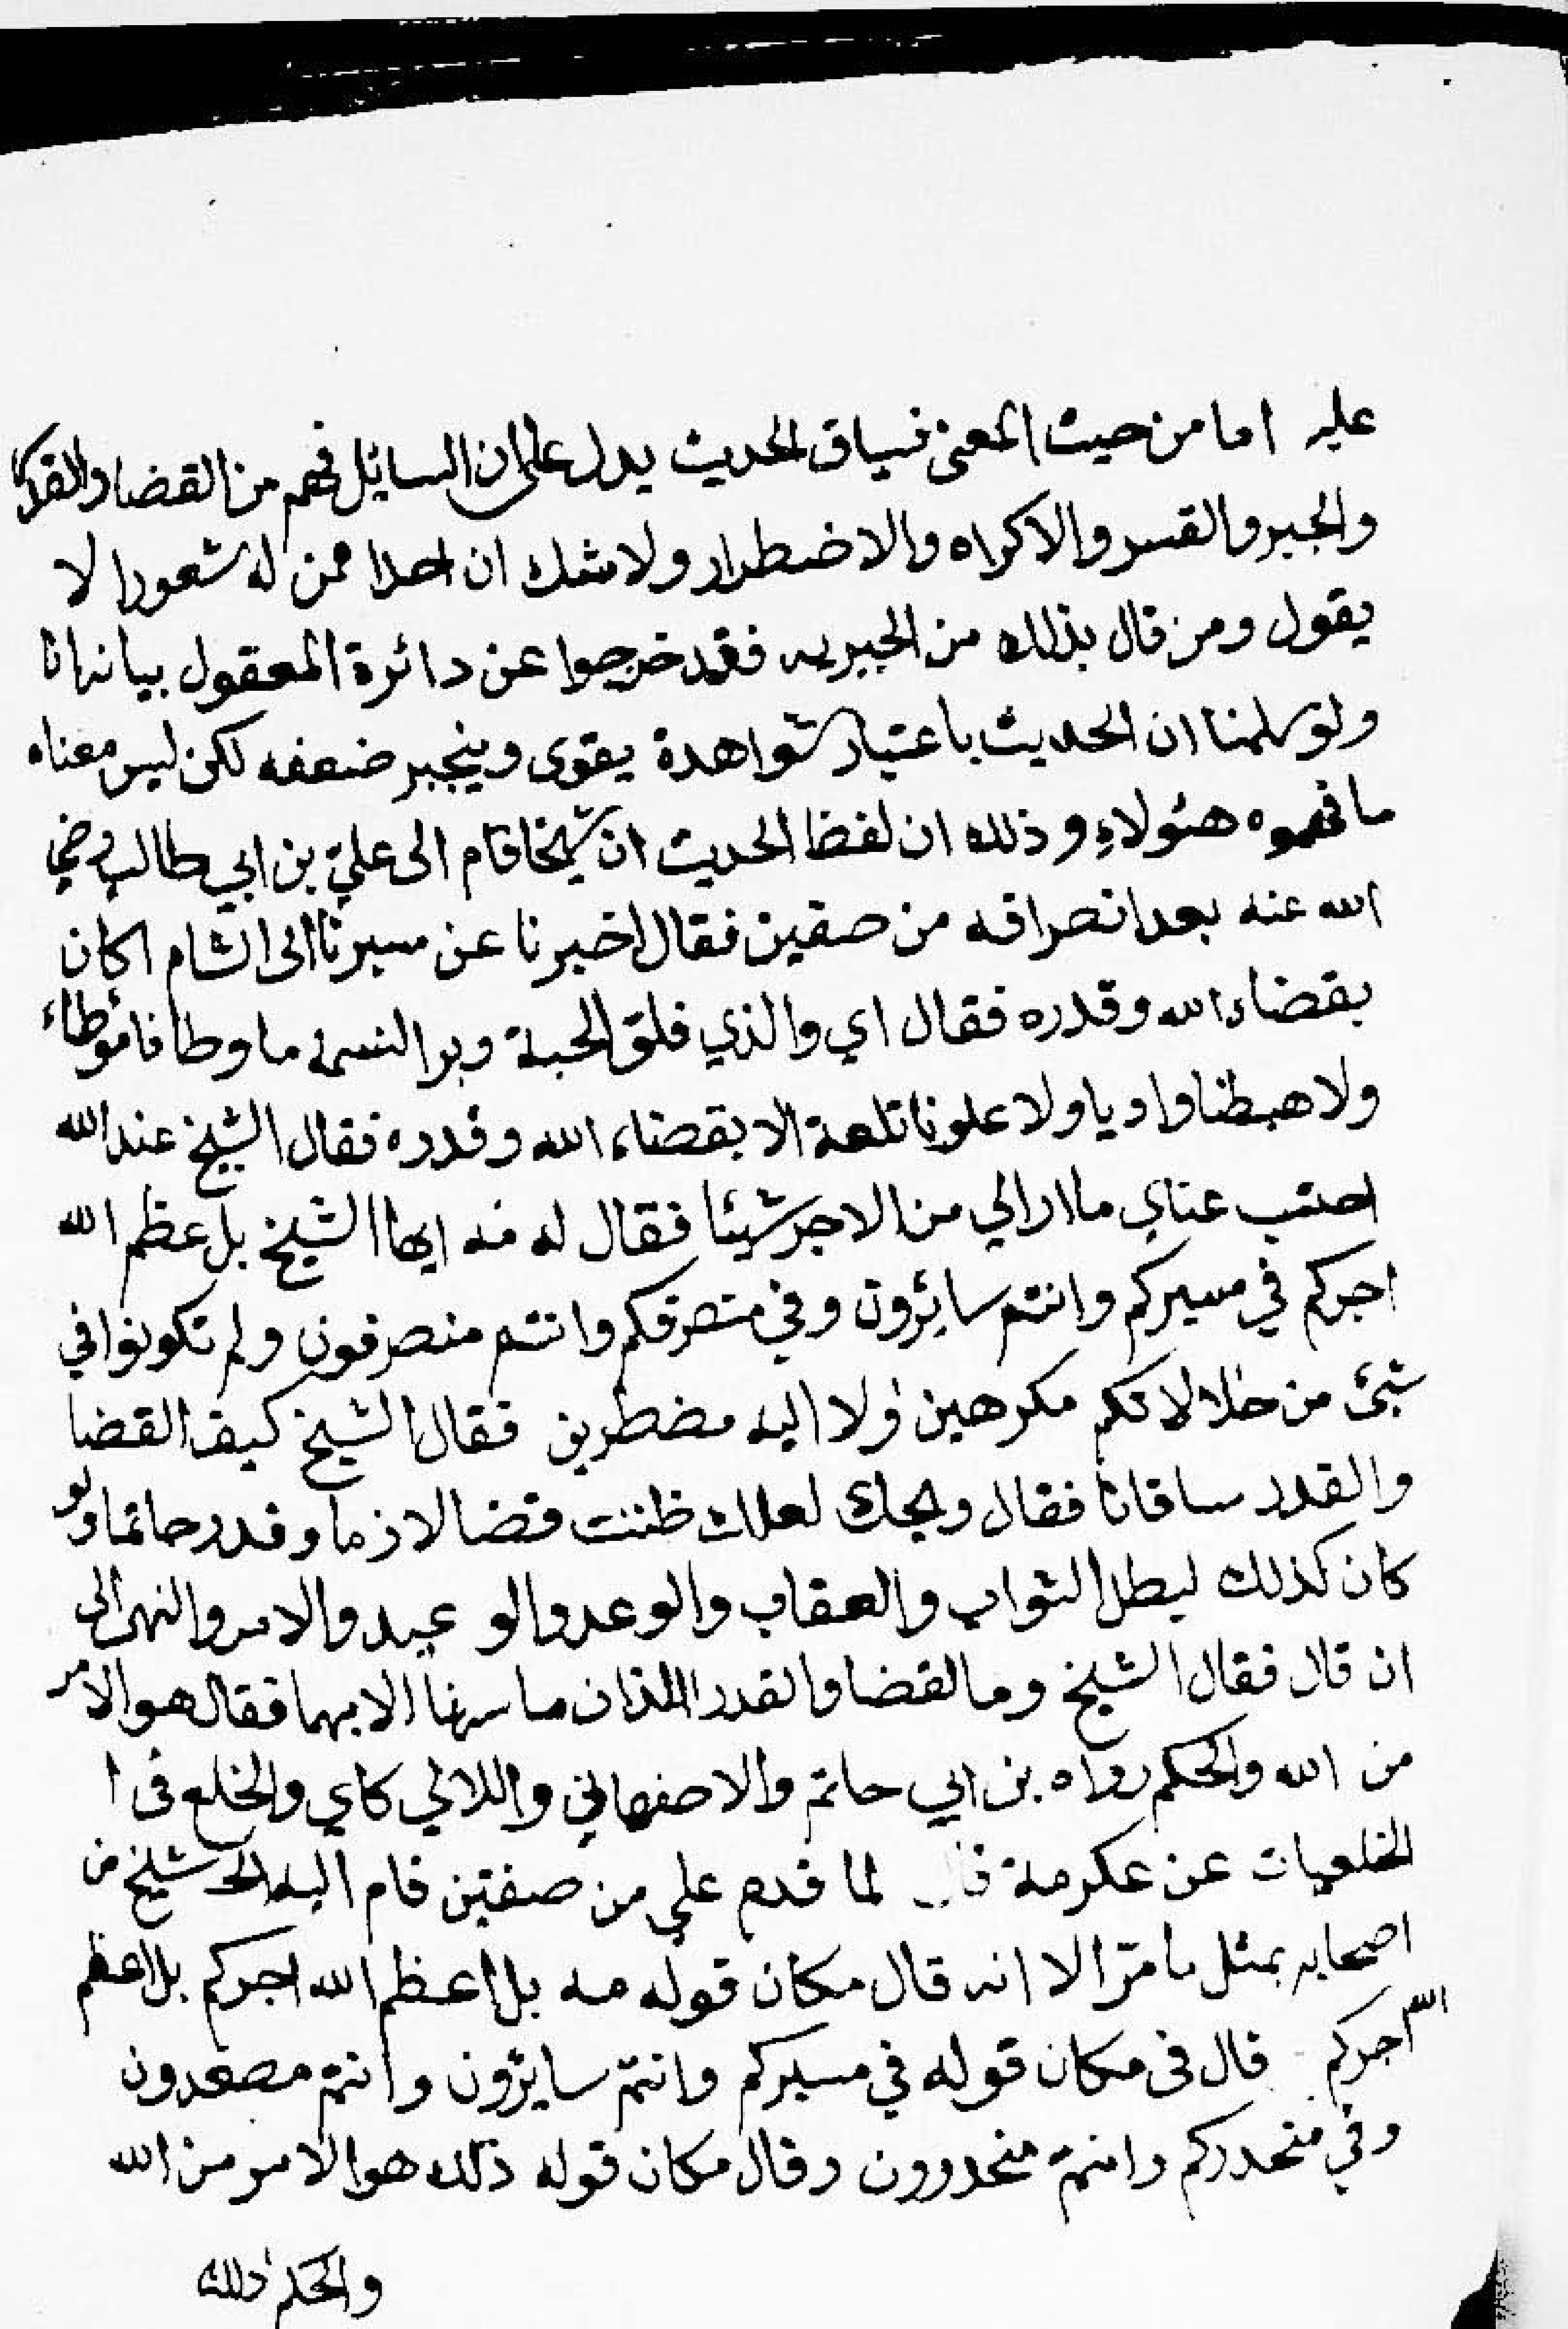 عليه اما من حيث المعنى فسياق الحديث يدل على ان السايل فهم من القضا والقدر
والجبر والقسر والاكراه والاضطرار ولا شك ان احدا ممن له شعورا لا
يقول ومن قال بذلك من الجبريه فقد خرجوا عن دائرة المعقول بيانه انا
ولو سلمنا ان الحديث باعتبار شواهدة يقوى وينجبر ضعفه لكن ليس معناه
ما فهموه هئولاء وذلك ان لفظ الحديث ان شيخا قام الى علي بن ابي طالب رضي
الله عنه بعد انصرافه من صفين فقال اخبرنا عن مسيرنا الى الشام اكان
بقضاء الله وقدره فقال اي والذي فلق الحبة وبرا النسمة ما وطانا موطاء
ولا هبطنا واديا ولا علونا تلعة الا بقضاء الله وقدره فقال الشيخ عند الله
احتسب عناي ما ارالي من الاجر شيئا فقال له مه ايها الشيخ بل عظم الله
اجركم في مسيركم وانتم سائرون وفي منصرفكم وانتم منصرفون ولم تكونوا في
شيئ من حالاتكم مكرهين ولا اليه مضطرين فقال الشيخ كيف القضا
والقدر ساقانا فقال ويحك لعلك ظننت قضا لازما وقدر حاتما ولو
كان كذلك لبطل الثواب والعقاب والوعد والوعيد والامر والنهى الى
ان قال فقال الشيخ وما القضا والقدر اللذان ما سرنا الا بهما فقال هو الامر
من الله والحكم رواه بن ابي حاتم والاصفهاني واللالي كاي والخلع فى ا
الخلعيات عن عكرمة قال لما قدم علي من صفين قام اليه شيخ من
اصحابه بمثل ما مرّ الا انه قال مكان قوله مه بل اعظم الله اجركم بل اعظم
الله اجركم قال فى مكان قوله في مسيركم وانتم سايرون وانتم مصعدون
وفي منحدركم وانتم منحدرون وقال مكان قوله ذلك هو الامر من الله
والحكم ذلك